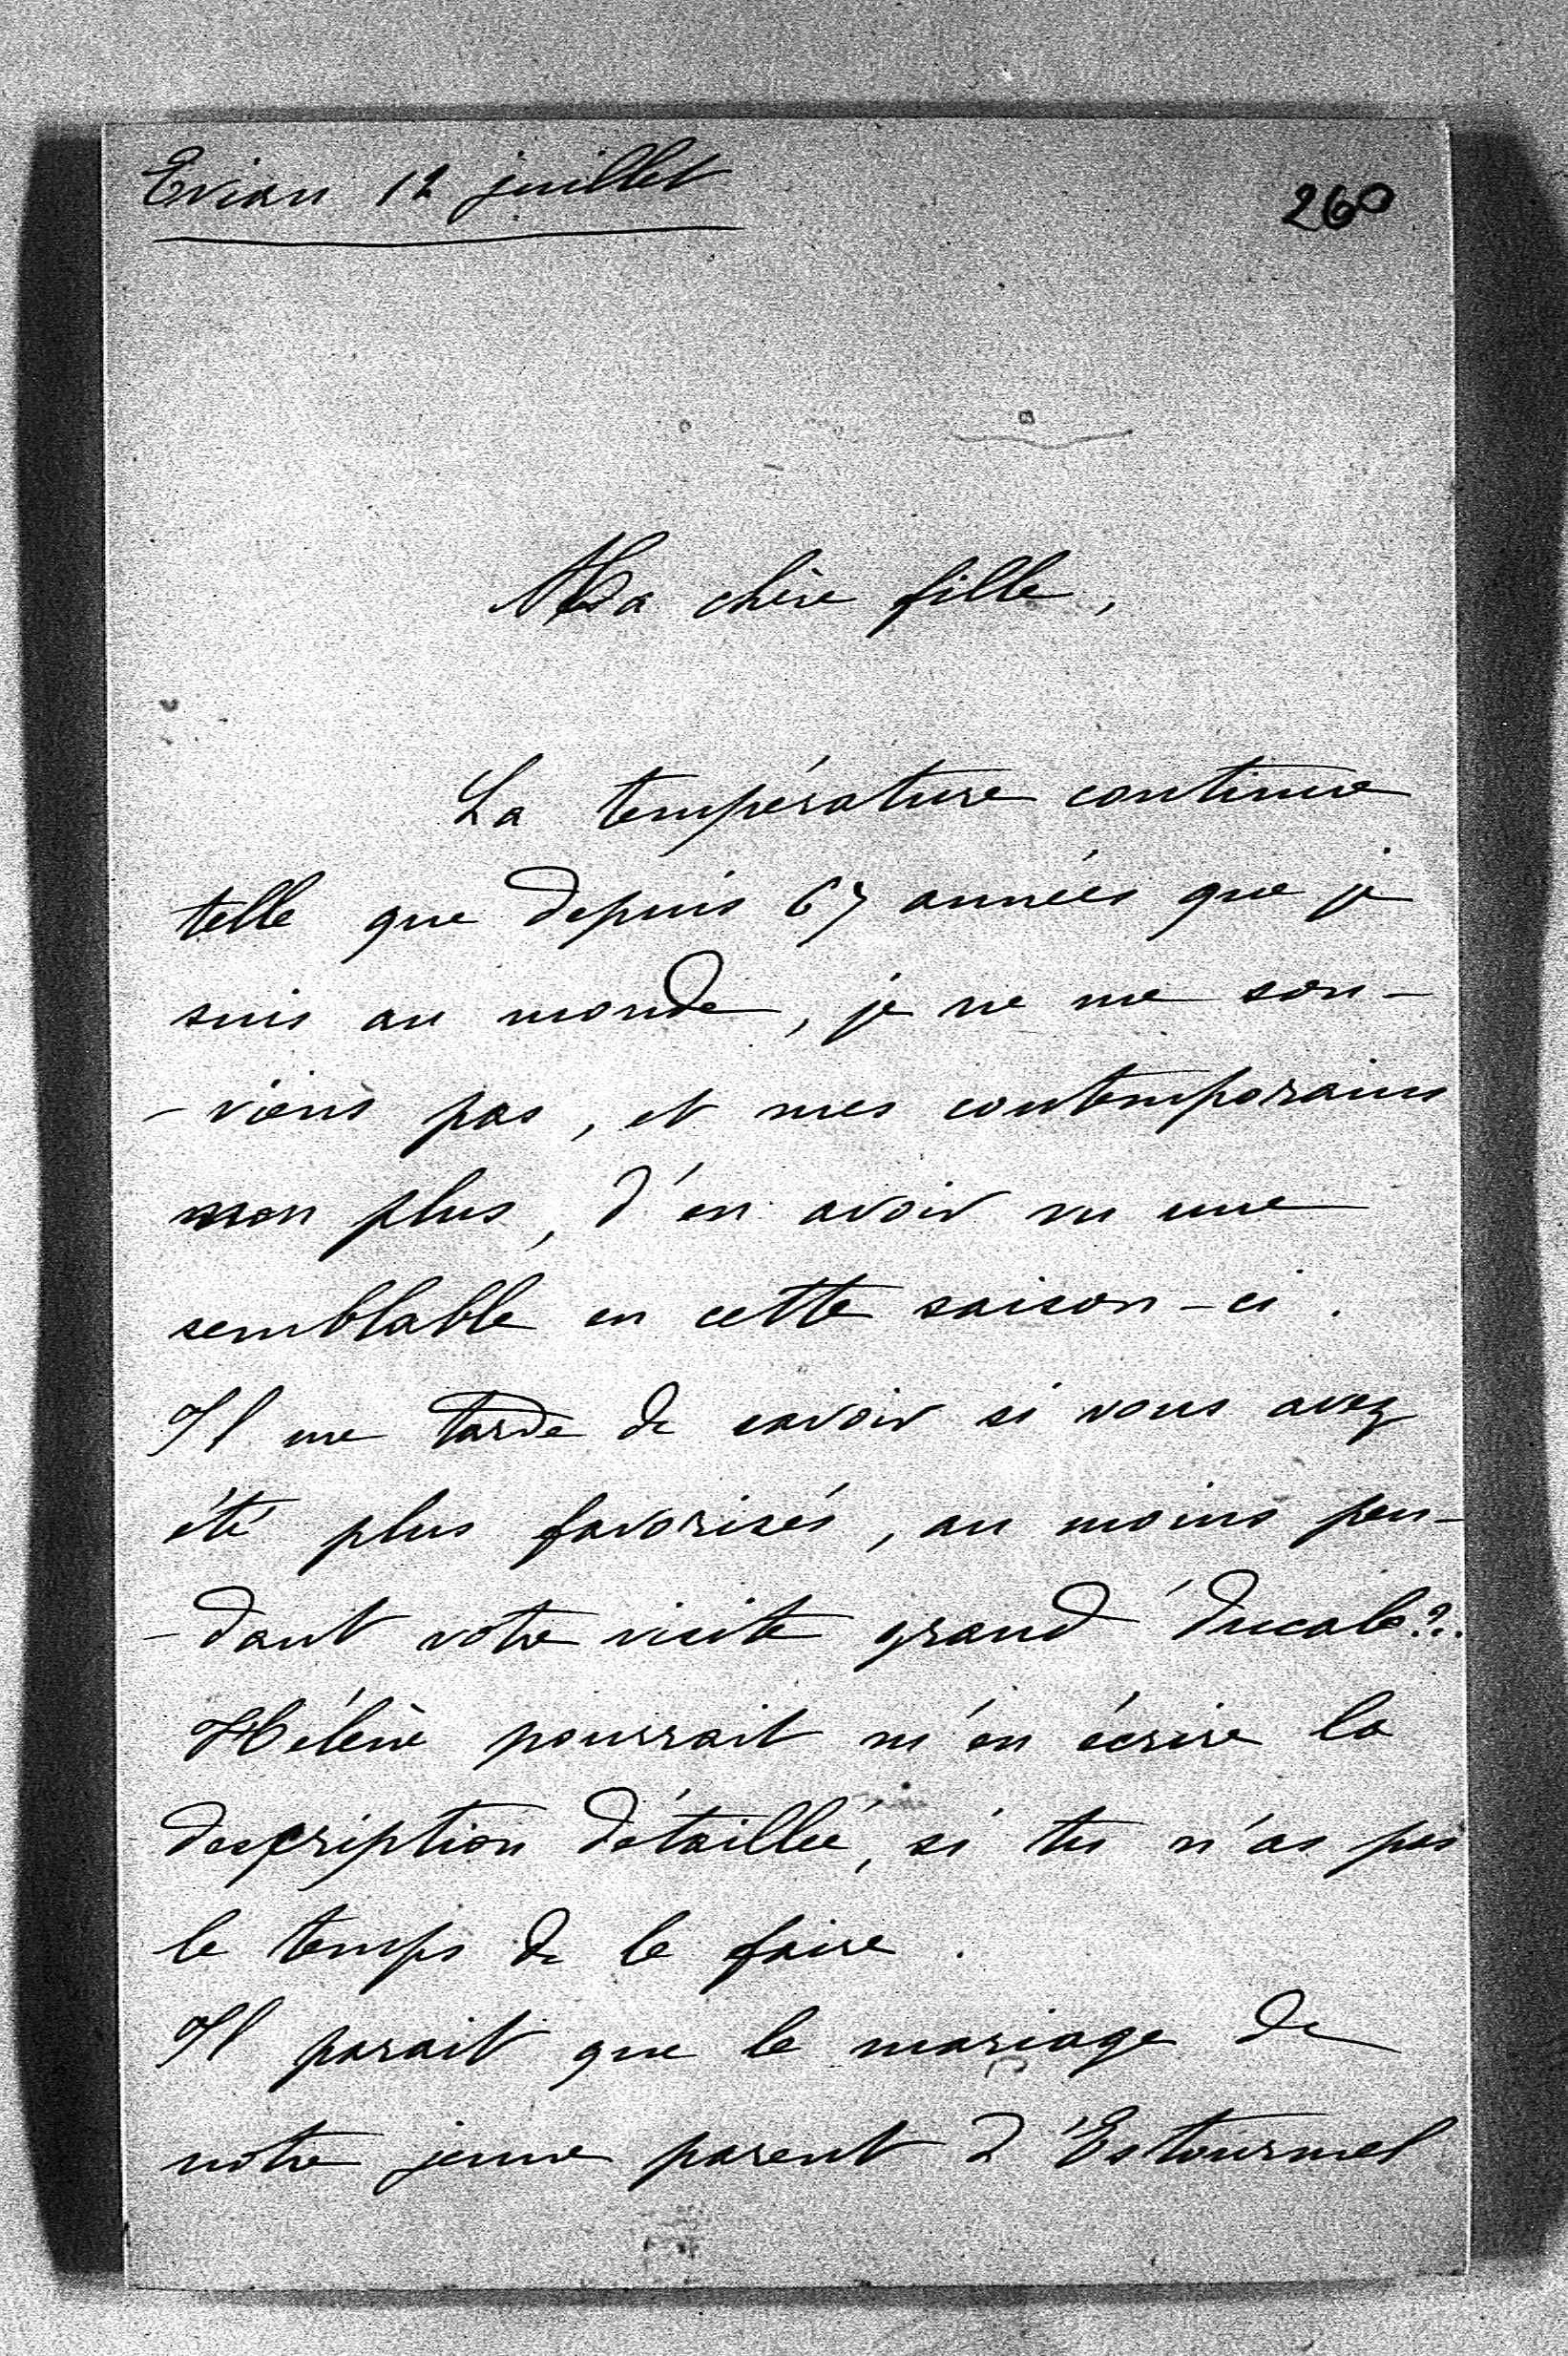 Evian 12 juillet
260
Ma chère fille,
La température continue
telle que depuis 67 années que je
suis au monde, je ne me sou-
-viens pas, et mes contemporains
non plus, d'en avoir vu une
semblable en cette saison-ci.
Il me tarde de savoir si vous avez
été plus favorisés, au moins pen-
-dant votre visite grand'ducale??
Hélène pourrait m'en écrire la
description détaillée, si tu n'as pas
le temps de le faire.
Il parait que le mariage de
notre jeune parent d'Estourmel